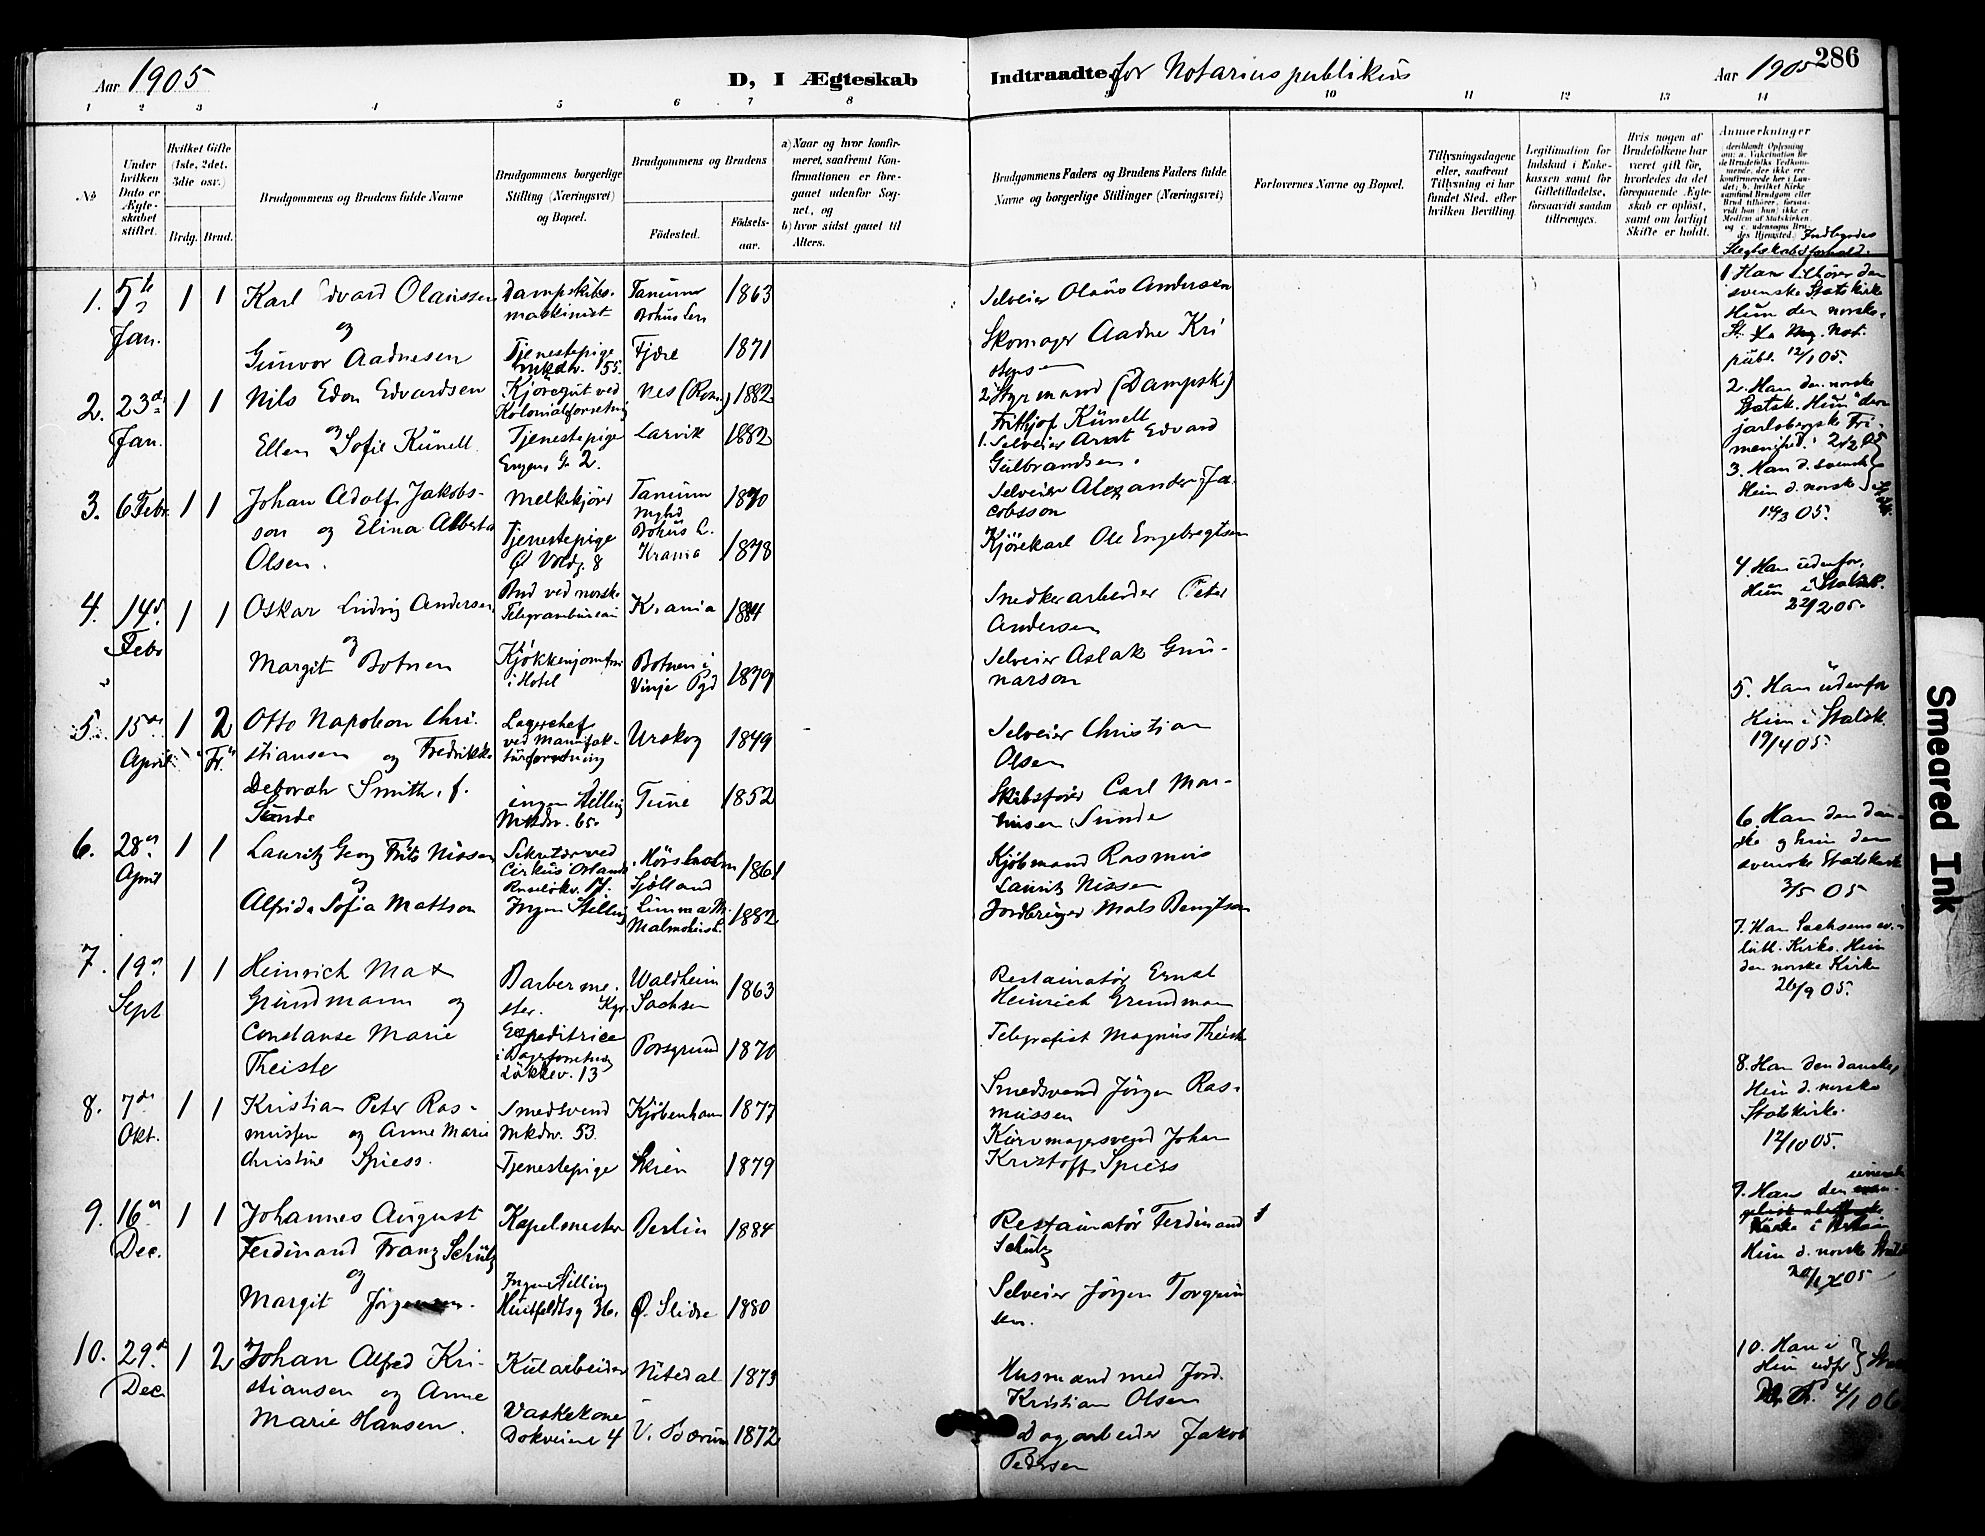 286
Aar 1905
D, I Ægteskab Indtraadte for Notarius publikus
Aar 1905
1 2 3 4 5 6 7 8 9 10 11 12 13 14
No
Under hvilken Dato er Ægteskabet stiftet.
Hvilket Gifte (1ste, 2det, 3die osv.)
Brdg. Brud.
Brudgommens og Brudens fulde Navne
Brudgommens borgerlige Stilling (Næringsvei) og Bopæl.
Brudgommens og Brudens
Födested. Födselsaar.
a) Naar og hvor konfirmeret, saafremt Konfirmationen er foregaaet udenfor Sognet, og
b) hvor sidst gaaet til Alters.
Brudgommens Faders og Brudens Faders fulde Navne og borgerlige Stillinger (Næringsvei)
Forlovernes Navne og Bopæl.
Tillysningsdagene eller, saafremt Tillysning ei har fundet Sted, efter hvilken Bevilling.
Legitimation for Indskud i Enkekassen samt for Giftetilladelse, forsaavidt saadan tiltrænges.
Hvis nogen af Brudefolkene har været gift för, hvorledes da det foregaaende Ægteskab er oplöst, samt om lovligt Skifte er holdt.
Anmerkninger
1. 5te Jan. 1 1
Karl Edvard Olaussen
og
Gunvor Aadnesen
Dampskibsmaskinist
Tjenestepige
Mkdv. 55.
Tanum
Bohus len
Fjære
1863
1871
Selveier Olaus Andersen
Skomager Aadne Kri
1. Han tilhører den
svenske Statskirke
Hun den norske.
publ. 12/1 05.
2. 23de Jan. 1 1
Nils Edon Edvardsen
og
Ellen Sofie Künell
Kjøregut ved
Kolonialforretning
Tjenestepige
Engens G. 2.
Nes (Rom)
Larvik
1882
1882
2. Styrmand (Dampsk)
Frithjof Künell
1. Selveier Arnt Edvard
Gulbrandsen.
2. Han den norske
Statsk. Hun den
jarlsbergske Frimenighd. 2/2 05
3. 6 Febr. 1 1
Johan Adolf Jakobsson og Elina Alberta
Olsen.
Melkekjører
Tjenestepige
Ø. Voldg. 8
Tanum
Bohus L.
Krania
1870
1878
Selveier Alexander Jacobsson
Kjørekarl Ole Engebregtsen
3. Han d. svenske
Hun d. norske
14/3 05.
4. 14d. Febr 1 1
Oskar Ludvig Andersen
og
Margit Botnen
Bud ved norske
Telegrambureau
Kjøkkenjomfru
i Hotel
Krania
Botnen i
Vinje Pgd
1884
1879
Snedkerarbeider Peter
Andersen
Selveier Aslak Gunnarson
4. Han udenfor,
Hun i Statsk.
22/2 05.
5. 15de April 1 2 "Fr."
Otto Napoleon Christiansen og Fredrikke
Deborah Smith, f.
Sunde
Lagerchef
ved Manufakturforretning
ingen Stilling
Mkdv. 65.
Urskog
Tune
1849
1852
Selveier Christian
Olsen
Skibsfører Carl Marinusen Sunde
5. Han udenfor
Hun i Statsk.
19/4 05.
6. 28de April 1 1
Lauritz Georg Frits Nissen
og
Alfrida Sofia Mattson
Sekretær ved
Cirkus Orlando
Ruseløkv. 17.
Ingen Stilling
Hørsholm
Sjælland
Malmøhus L.
1861
1882
Kjøbmand Rasmus
Lauritz Nissen
Jordbruger Mats Bengtson
6. Han den danske og hun den
svenske Statskirke
3/5 05
7. 19de Sept 1 1
Heinrich Max
Grundmann og
Constanse Marie
Theiste
Barbermester.
Expeditrice
i Bagerforretning
Løkkev. 13
Waldheim
Kgr. Sachsen
Porsgrund
1863
1870
Restauratør Ernst
Heinrich Grundmann
Telegrafist Magnus Theiste
7. Han Sachsens ev.-
luth. Kirke. Hun
den norske Kirke
26/9 05.
8. 7de Okt. 1 1
Kristian Peter Rasmussen og Anne Marie
Christine Spiess.
Smedsvend
Mkdv. 53.
Tjenestepige
Kjøbenhavn
Skien
1877
1879
Smedsvend Jörgen Rasmussen
Kurvmagersvend Johan
Kristoff Spiess
8. Han den danske,
Hun d. norske
Statskirke.
12/10 05.
9. 16de Dec. 1 1
Johannes August
Ferdinand Franz Schülz
og
Margit Jörgensen.
Kapelmester
Ingen Stilling
Huitfeldtsg 36.
Berlin
Ø. Slidre
1884
1880
Restauratør Ferdinand
Schülz
Selveier Jörgen Torgrimsen.
9. Han den
Kirke i
Hun d. norske
10. 29de Dec 1 2
Johan Alfred Kristiansen og Anne
Marie Hansen.
Kularbeider
Vaskekone
Dokveien 4
Nitedal
V. Bærum
1873
1872
Husmand med Jord.
Kristian Olsen
Dagarbeider Jakob
Pedersen
10. Han i
Hun udfr
4/1 06
Smeared Ink